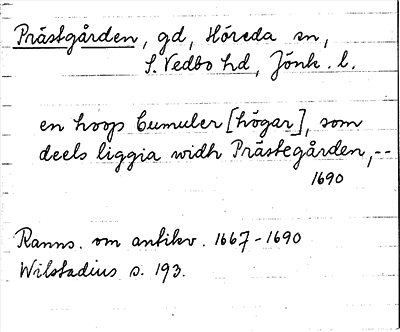 Prästgården, gd, Höreda sn,
S. Vedbo hd, Jönk. l.
en hoop Cumuler [högar], som
deels liggia widh Prästegården, --
1690
Ranns. om antikv. 1667-1690
Wilstadius s. 193.